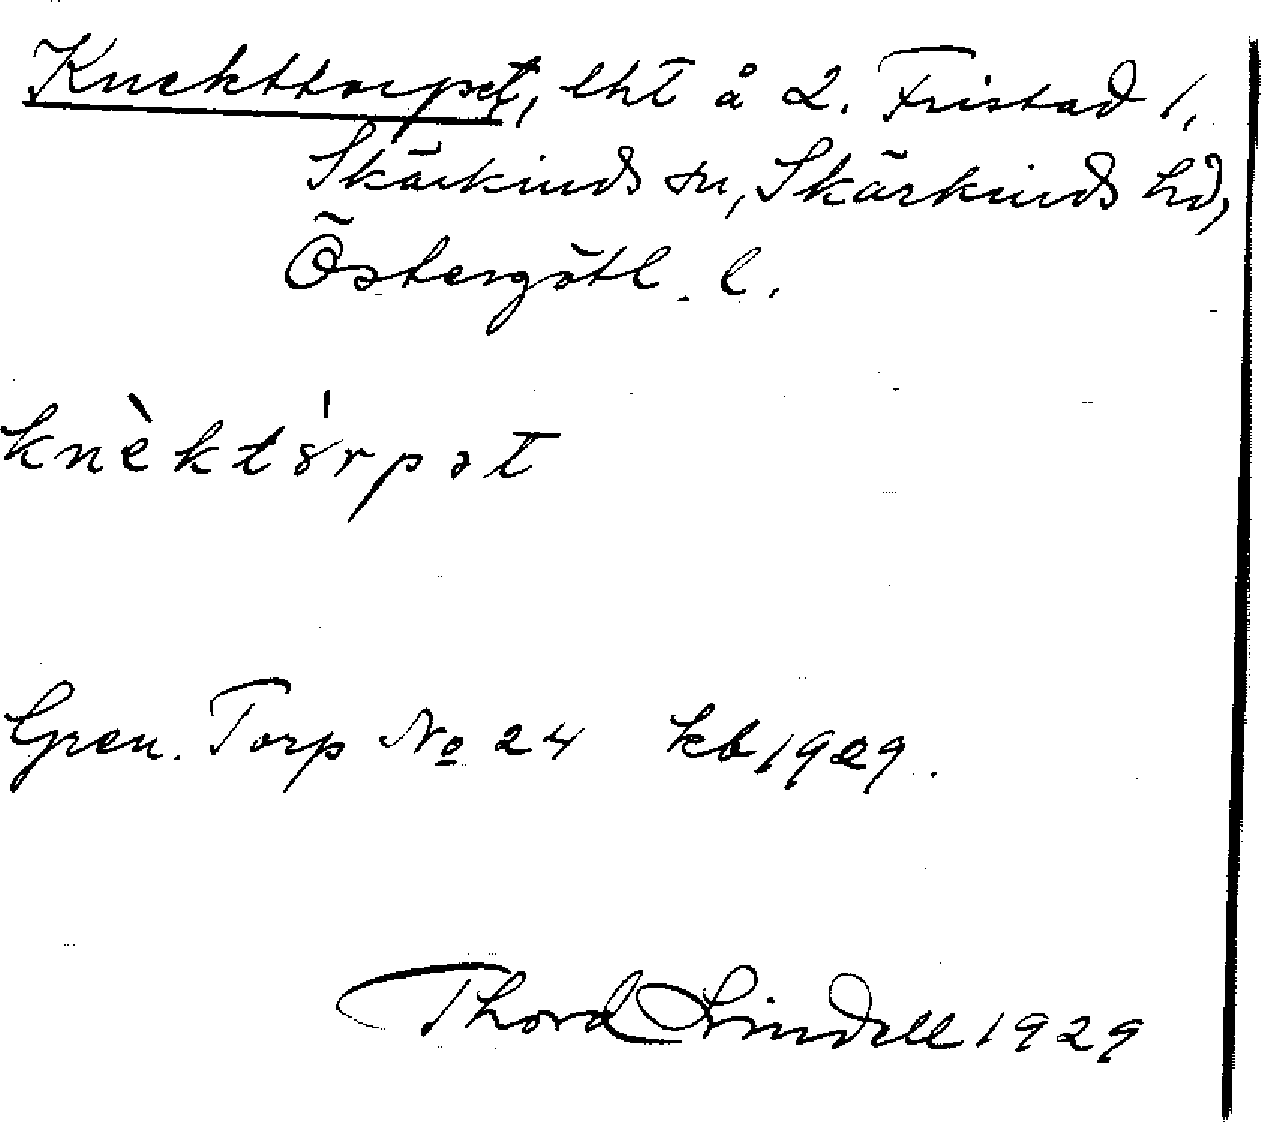 Knekttorpet, lht å 2. Fristad 1,
Skärkinds sn, Skärkinds hd,
Östergötl. l.
knὲktórpət
Gren. Torp No 24 kb 1929.
Thord Lindell 1929